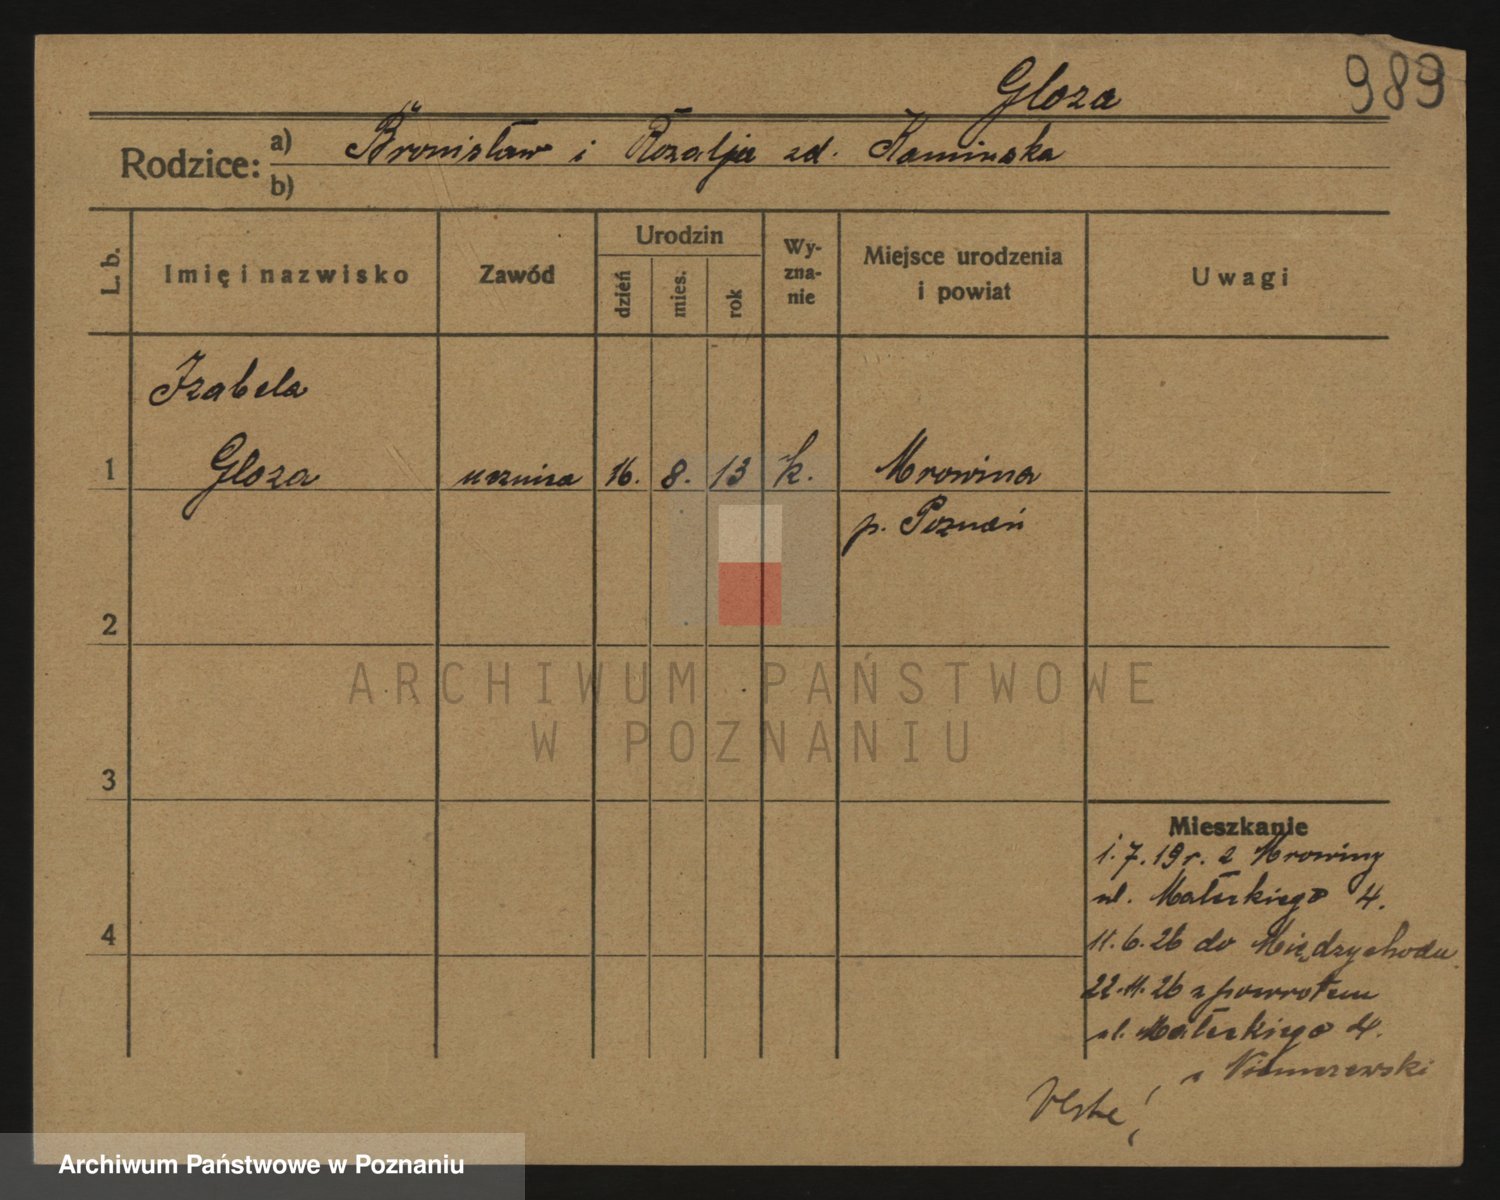 Gloza
989
Rodzice:
a) Bronisław i Rozalja zd. Kamińska
b)
L. b.
Imię i nazwisko
Zawód
Urodzin
dzień
mies.
rok
Wy-
zna-
nie
Miejsce urodzenia
i powiat
Uwagi
Izabela
1 Gloza ucznica 16. 8. 13 k. Mrowina
p. Poznań
2
3
4
ARCHIWUM PAŃSTWOWE
W POZNANIU
Mieszkanie
1.7.19 r. z Mrowiny
ul. Małeckiego 4.
11.6.26 do Międzychodu
22.11.26 z powrotem
ul. Małeckiego 4.
Archiwum Państwowe w Poznaniu